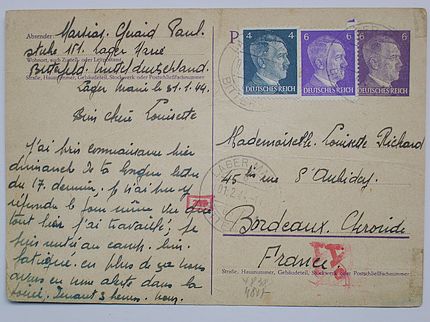 Absender: Martias Gérard Paul.
stube 151. Lager Marie
Wohnort, auch Zustell- oder Leitpostamt
Bitterfeld. Mitteldeutschland.
Straße, Hausnummer, Gebäudeteil, Stockwerk oder Postschließfachnummer
Lager Marie le 31.1.44.
Bien chère Louisette
J'ai pris connaissance hier
dimanche de ta longue lettre
du 17 dernier, je n'ai pu y
répondre le jour même vu que
tout hier j'ai travaillé; je
suis rentré au camp. bien
fatigué. en plus de ça nous
avons eu une alerte dans la
soirée. durant 3 heures. nous.
4
DEUTSCHES REICH
6
DEUTSCHES REICH
6
DEUTSCHES REICH
Mademoiselle Louisette Richard
45 bis rue d'Aubidey
Bordeaux. Gironde
France.
Straße, Hausnummer, Gebäudeteil, Stockwerk oder Postschließfachnummer